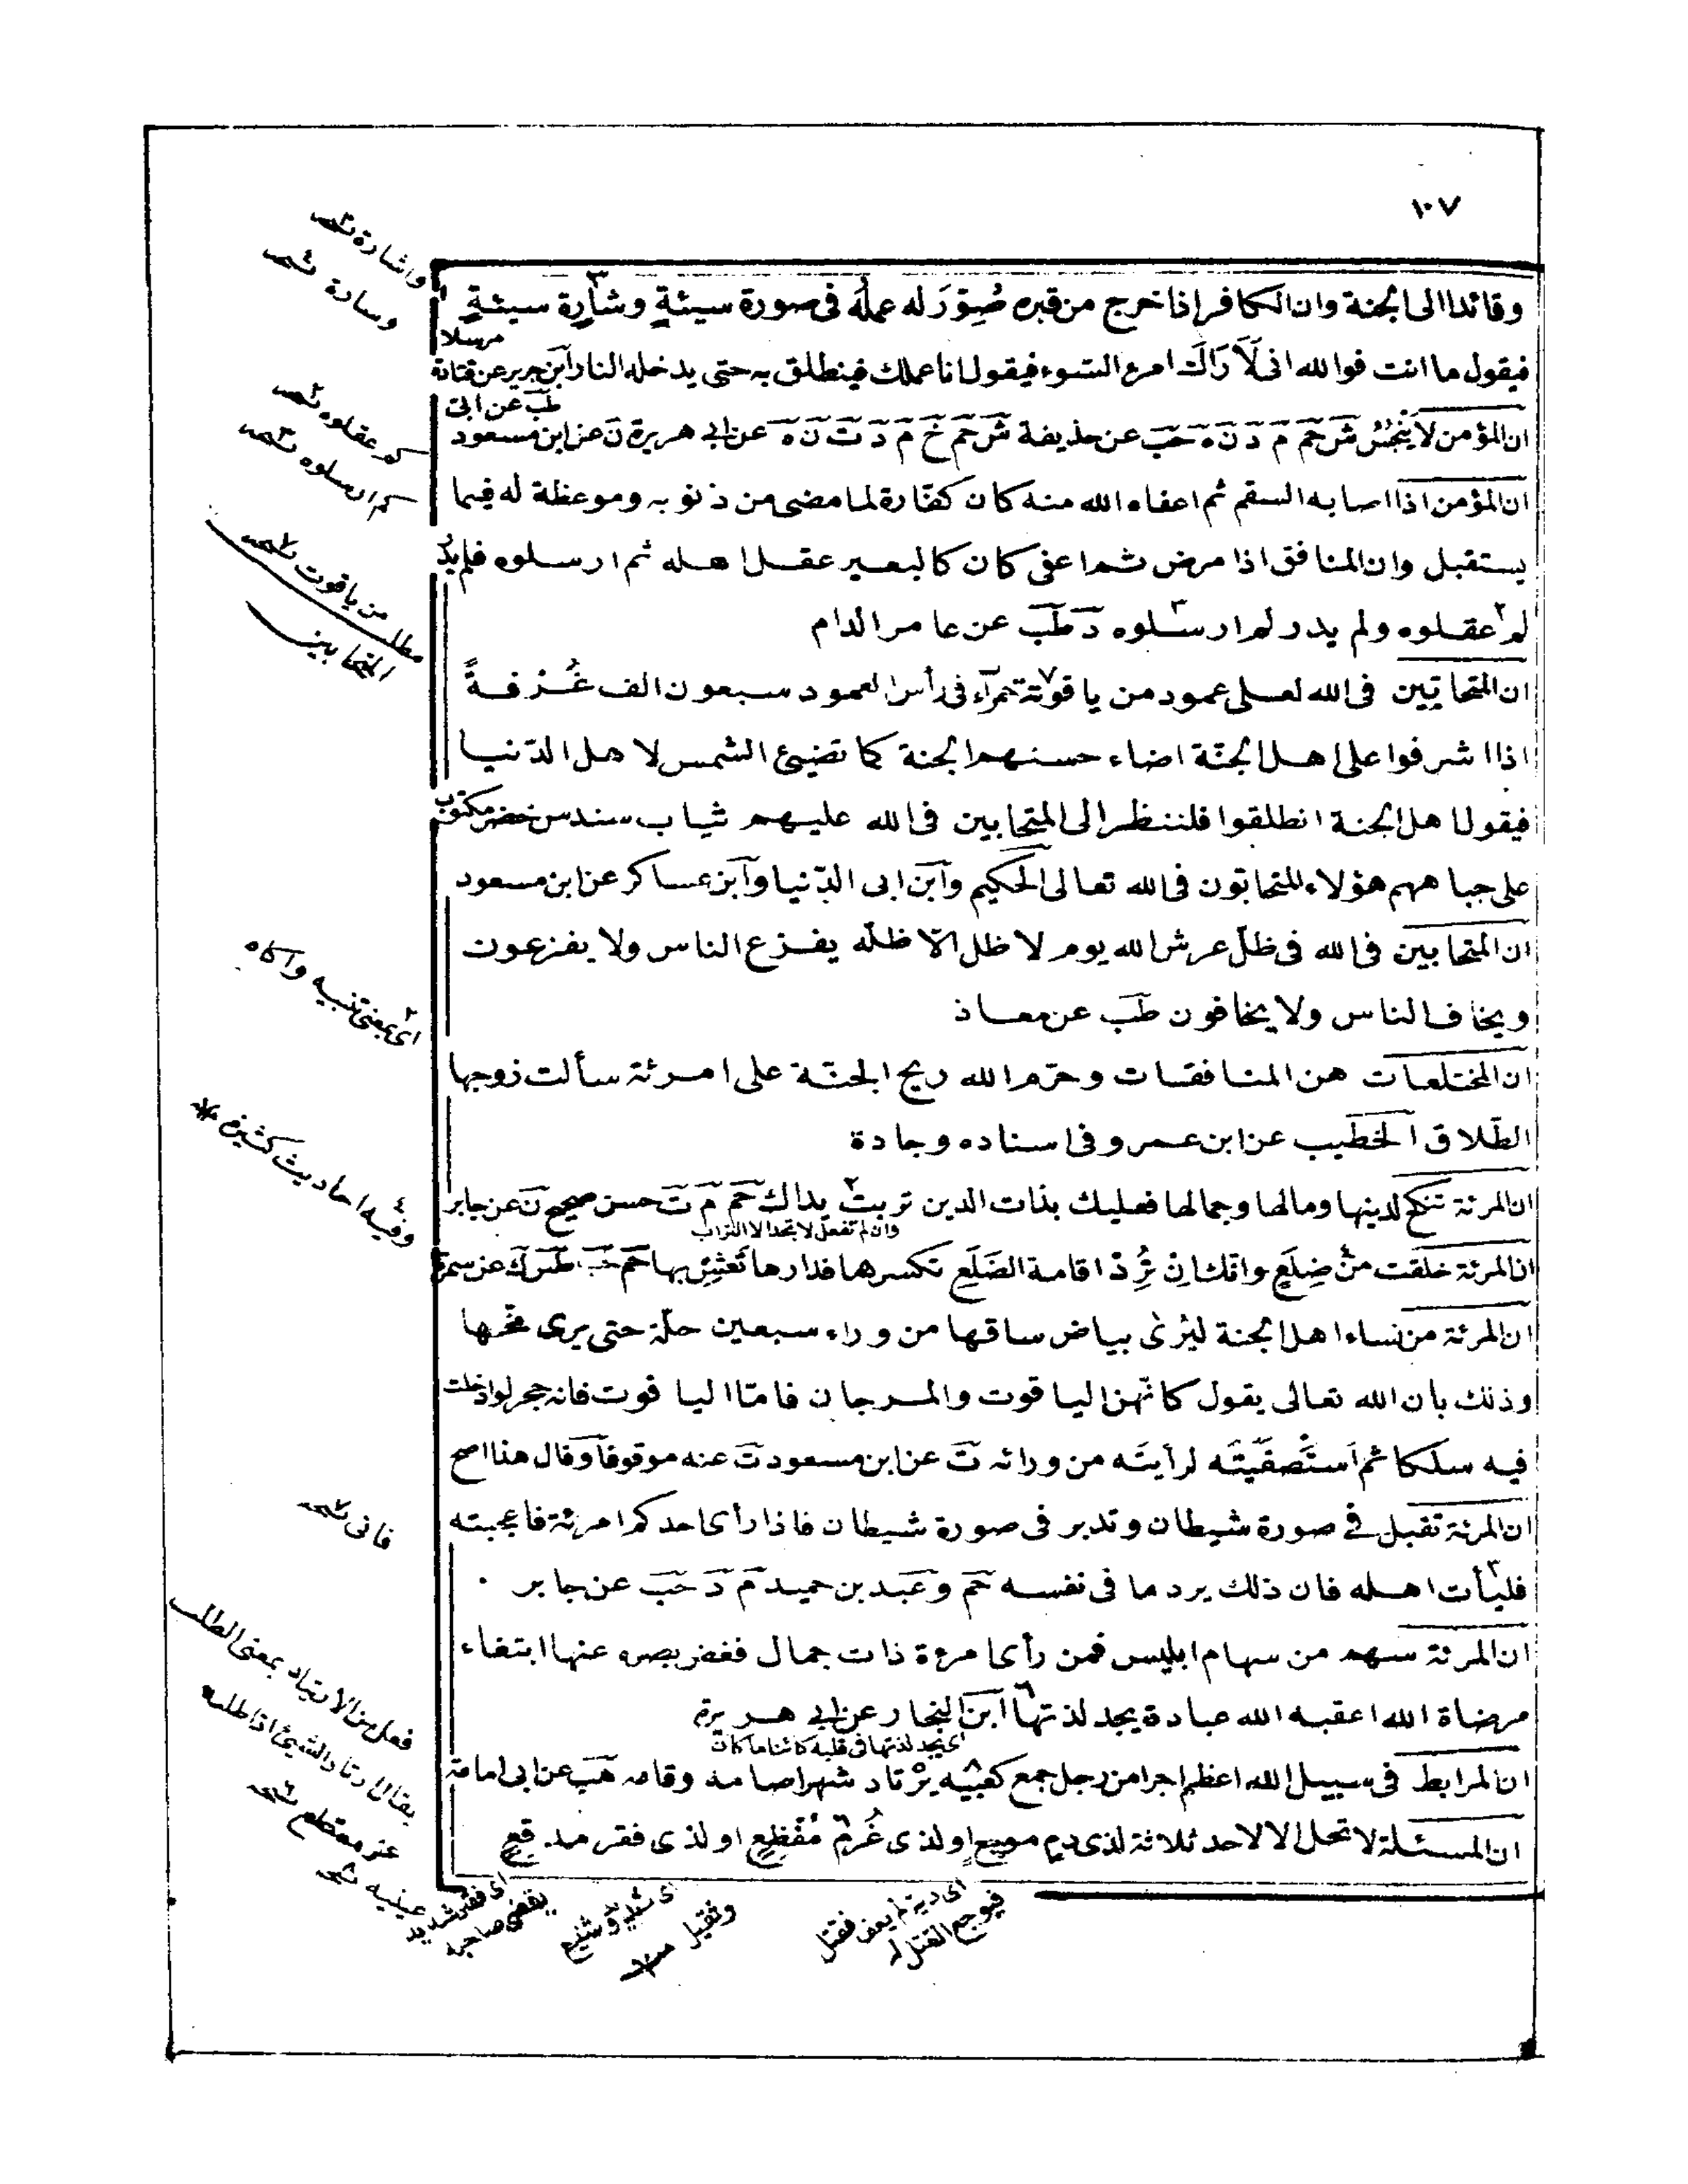 ١٠٧
وقائدا الى الجنة وان الكافر اذا خرج من قبره صُوِّرَ له عمله فى صورة سيئةٍ وشارة سيئةٍ
مرسلا
فيقول ما انت فوالله انى لَاَرَاكَ امرء السّوء فيقول انا عملك فينطلق به حتى يدخله النار ابن جرير عن قتادة
طب عن ابى
ان المؤمن لا ينجُسُ ش حم م د ن ه حب عن حذيفة ش حم خ م د ت ن ه عن ابى هريرة ن عن ابن مسعود
ان المؤمن اذا اصابه السقم ثم اعفاه الله منه كان كفّارة لما مضى من ذنوبه وموعظة له فيما
يستقبل وان المنافق اذا مرض ثم اعفى كان كالبعير عقل اهله ثم ارسلوه فلم يدر
لم عقلوه ولم يدر لم ارسلوه د طب عن عامر الدام
ان المتحابّين فى الله لعلى عمود من ياقوتة حمرآء فى رأس العمود سبعون الف غُرفةً
اذا اشرفوا على اهل الجنّة اضاء حسنهم الجنة كما تضيئ الشمس لاهل الدّنيا
فيقول اهل الجنة انطلقوا فلننظر الى المتحابين فى الله عليهم ثياب سندس خضر مكتوب
على جباههم هؤلاء المتحابّون فى الله تعالى الحكيم وابن ابى الدّنيا وابن عساكر عن ابن مسعود
ان المتحابين فى الله فى ظلّ عرش الله يوم لا ظل الّا ظلّه يفزع الناس ولا يفزعون
ويخاف الناس ولا يخافون طب عن معاذ
ان المختلعات هن المنافقات وحرّم الله ريح الجنّة على امرئة سألت زوجها
الطّلاق الخطيب عن ابن عمر وفى اسناده وجادة
ان المرئة تنكح لدينها ومالها وجمالها فعليك بذات الدين تربت يداك حم م ت حسن صحيح ن عن جابر
وان لم تفعل لا تجد الا التراب
ان المرئة خلقت من ضِلَعٍ وانك اِنْ تُرِدْ اقامة الضَلَعِ تكسرها فدارها تَعِشْ بها حم حب طب ك عن سمرة
ان المرئة من نساء اهل الجنة ليُرٰى بياض ساقها من وراء سبعين حلّة حتى يرى مخّها
وذلك بان الله تعالى يقول كانّهن الياقوت والمرجان فامّا الياقوت فانه حجر لو ادخلت
فيه سلكا ثم اَستَصْفَيْتَه لرأيتَه من ورائه ت عن ابن مسعود ت عنه موقوفا وقال هذا اصح
ان المرئة تقبل فى صورة شيطان وتدبر فى صورة شيطان فاذا رأى احدكم امرئة فاعجبته
فليأت اهله فان ذلك يرد ما فى نفسه حم وعبد بن حميد م د حب عن جابر
ان المرئة سهم من سهام ابليس فمن رأى امرءة ذات جمال فغض بصره عنها ابتغاء
مرضاة الله اعقبه الله عبادة يجد لذتها ابن النجار عن ابى هريرة
اى يجد لذتها فى قلبه كائنا ما كان
ان المرابط فى سبيل الله اعظم اجرا من رجل جمع كعبيه يَرْتاد شهرا صامه وقامه هب عن ابى امامة
ان المسئلة لا تحل الا لاحد ثلاثة لذى دم موجع او لذى غُرمٍ مُفْظِعٍ او لذى فقر مدقِعٍ
واشارة نسخه
وسادة نسخه
لم عقلوه نسخه
لم ارسلوه نسخه
من ياقوت نسخه
مطلب
المتحابين
اى بمعنى تنبيه وآكاه
وفيه احاديث كثيرة
فانى نسخه
فعل من الارتياد بمعنى الطلب
يقال ارتاد الشيئ اذا طلبه
غرم مقطع نسخه
عينيه نسخه
اى فقر شديد
يفضى صاحبه
اى شديد وشنيع
وثقيل
اى دية لم يعف فقتل
فيوجع القتل له